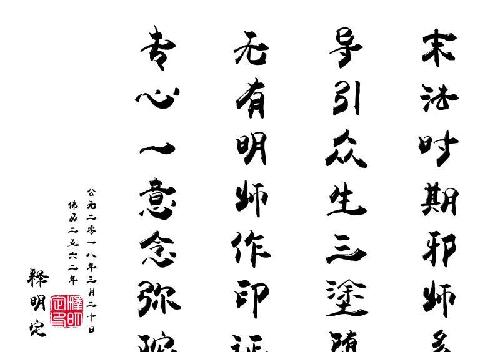 末法时期邪师多
导引众生三塗堕
无有明师作印证
专心一意念弥陀
公元二零一八年三月二十日
佛历二五六二年
释明定